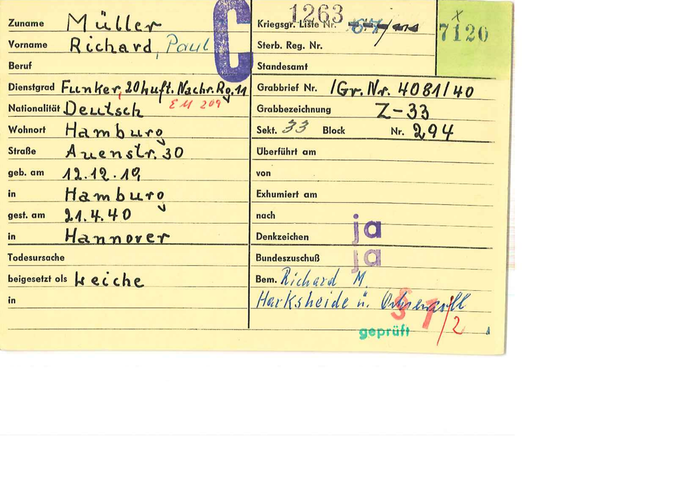 Zuname Müller
Vorname Richard, Paul
Beruf
Dienstgrad Funker, 20 Luft. Nachr. Rg. 11
Nationalität Deutsch EM 209
Wohnort Hamburg
Straße Auenstr. 30
geb. am 12.12.19
in Hamburg
gest. am 21.4.40
in Hannover
Todesursache
beigesetzt als Leiche
in
C
Kriegsgr. Liste Nr. 1263
Sterb. Reg. Nr.
Standesamt
x
7120
Grabbrief Nr. /Gr. Nr. 4081/40
Grabbezeichnung Z-33
Sekt. 33 Block Nr. 294
Überführt am
von
Exhumiert am
nach
Denkzeichen ja
Bundeszuschuß ja
Bem. Richard M.
Harksheide ü. Ochsenzoll
§ 1/2
geprüft